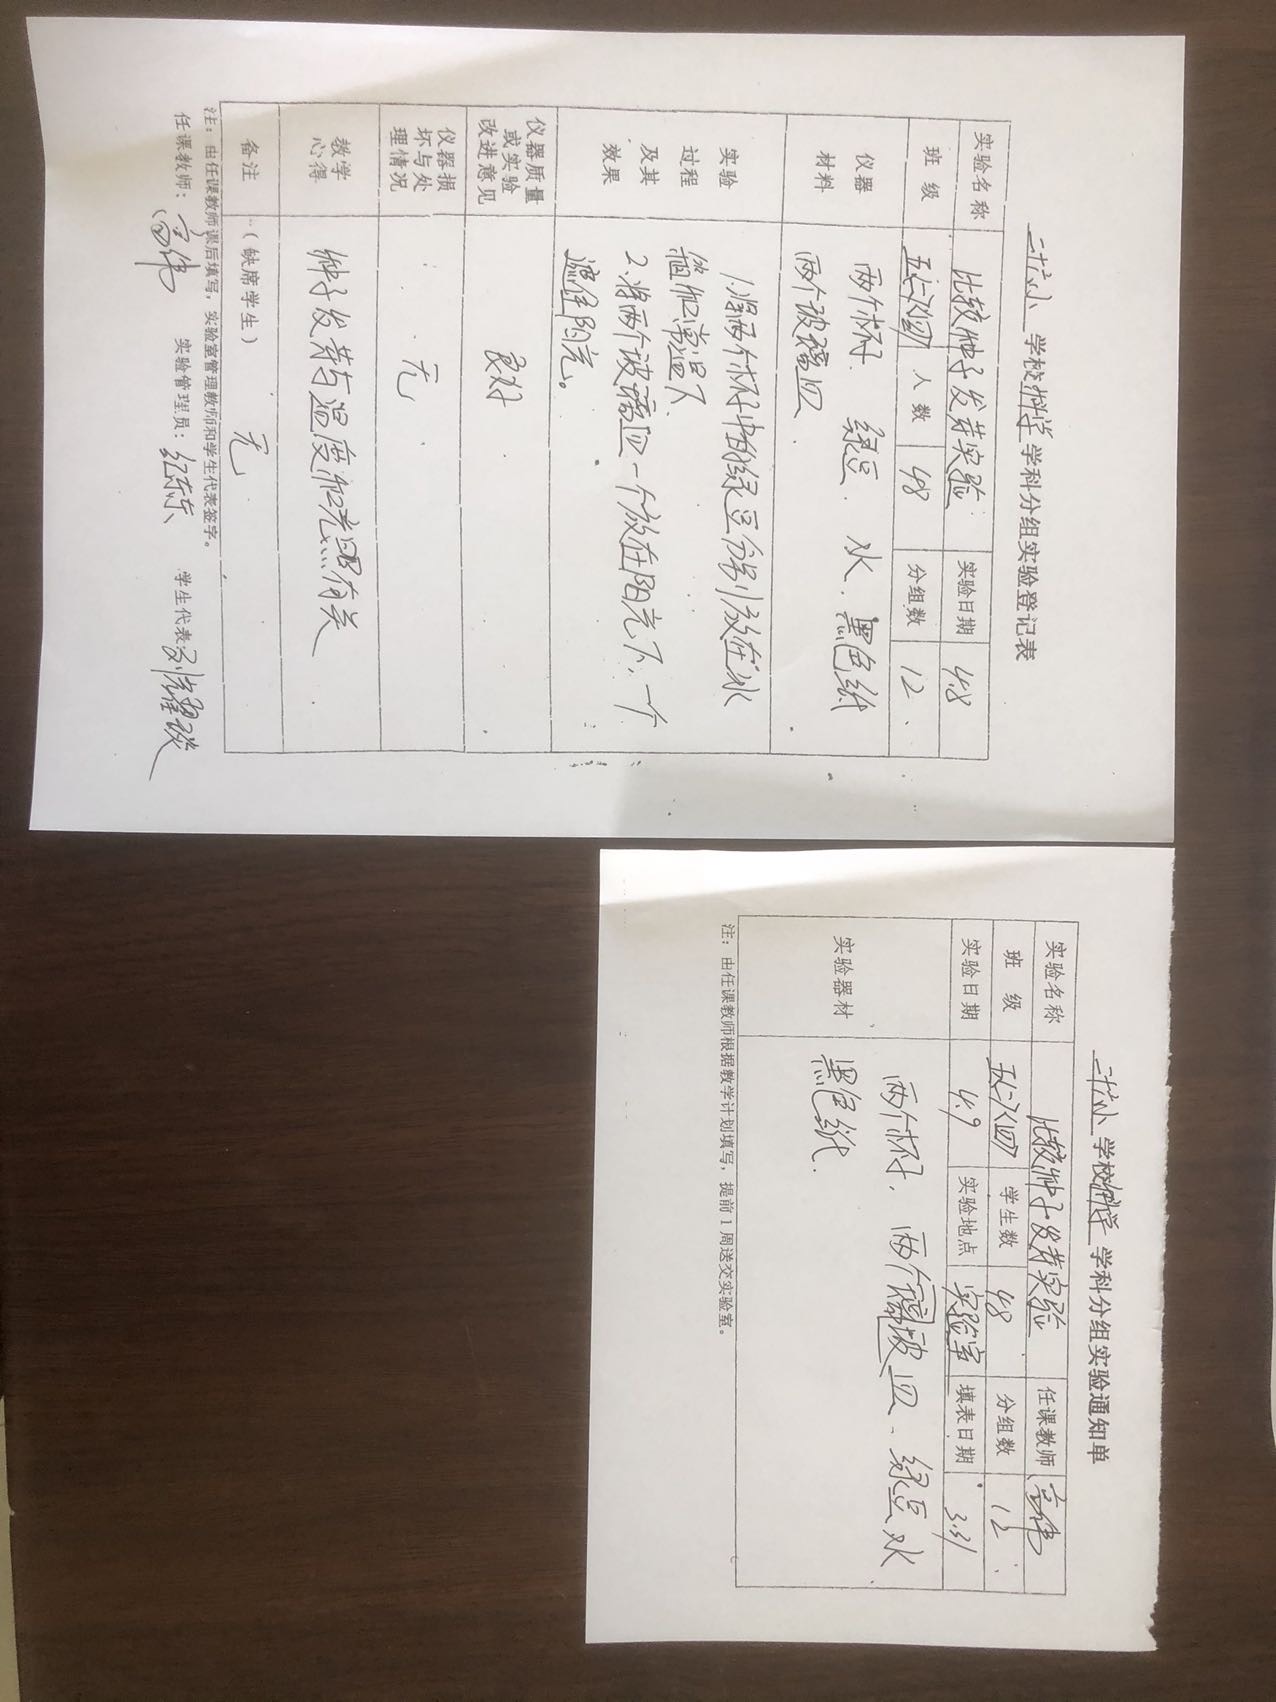 学校科学学科分组实验登记表
实验名称 比较种子发芽实验 实验日期 4.8
班 级 人数 48 分组数 12
仪器材料 两个杯子 绿豆、水、黑色纸
两个玻璃皿
实验过程及其效果 1.将两个杯子中的绿豆分别放在冰
箱和常温下
2.将两个玻璃皿一个放在阳光下,一个
遮住阳光。
仪器质量或实验改进意见 良好
仪器损坏与处理情况 无
教学心得 种子发芽与温度和光照有关
备注 (缺席学生) 无
注:由任课教师课后填写,实验室管理教师和学生代表签字。
任课教师: 实验管理员: 学生代表:
学校科学学科分组实验通知单
实验名称 比较种子发芽实验 任课教师
班 级 学生数 48 分组数 12
实验日期 4.9 实验地点 实验室 填表日期 3.31
实验器材 两个杯子,两个璃玻皿、绿豆 水
黑色纸.
注:由任课教师根据教学计划填写,提前1周送交实验室。